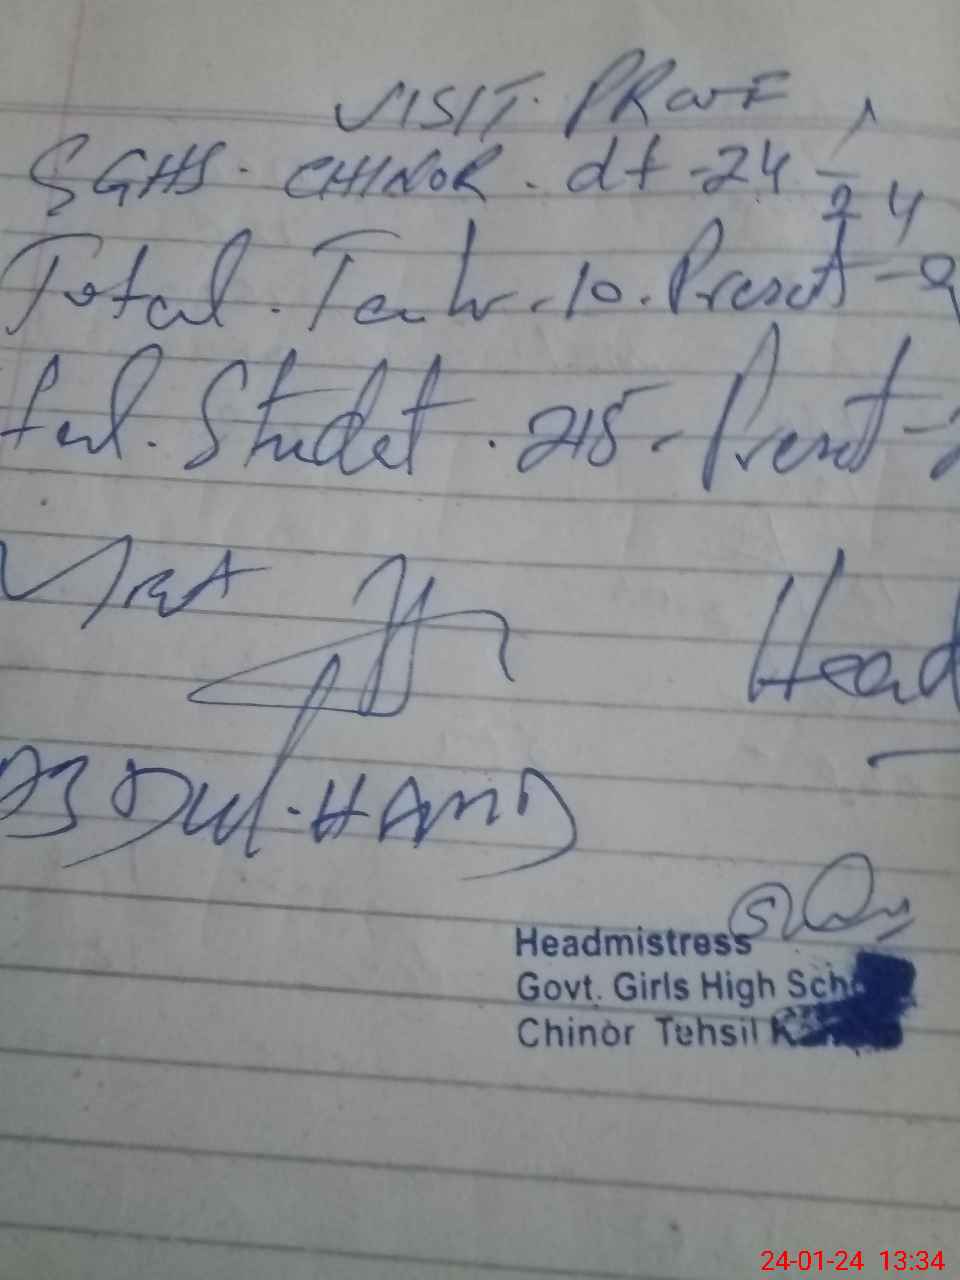 VISIT. PROOF
GGHS. CHINOR. dt-24
24
Total. 10. Present-9
Student. 215- Present-
Head
ABDUL.HAMID
Headmistress
Govt. Girls High
Chinor Tehsil
24-01-24 13:34